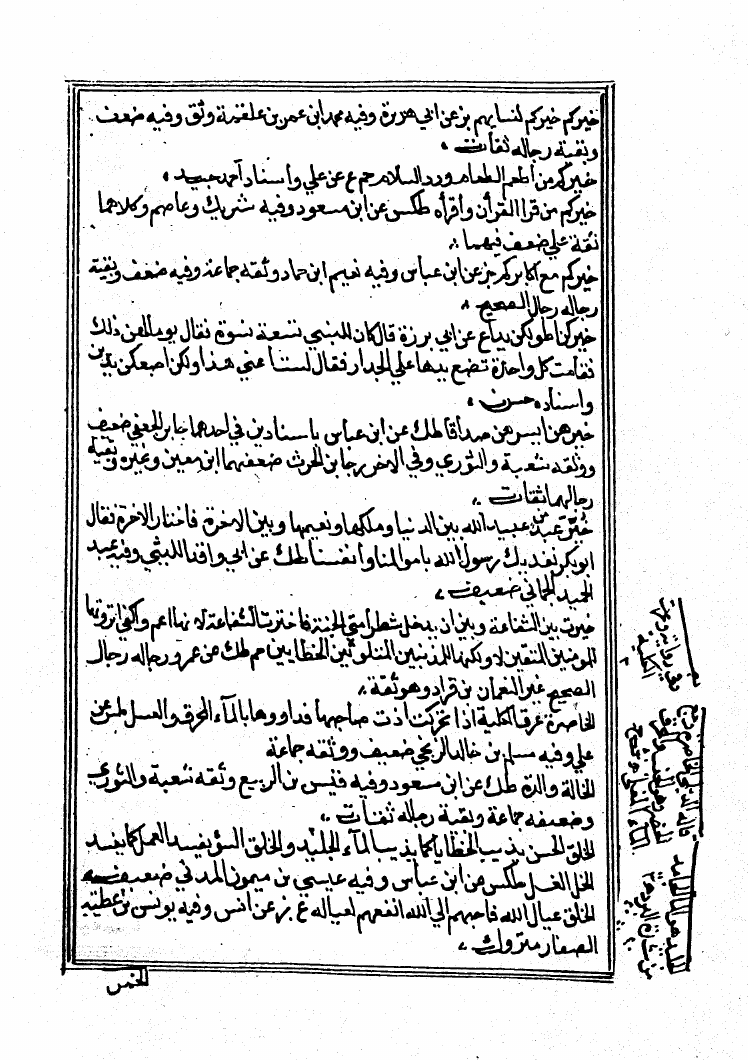 خيركم خيركم لنسايهم بز عن ابي هريرة وفيه محمد ابن عمرو بن علقمة وثق وفيه ضعف
وبقية رجاله ثقات
خيركم من أطعم الطعام ورد السلام حم ع عن علي وأسناد أحمد جيد
خيركم من قرا القرأن وأقرأه طكس عن ابن مسعود وفيه شريك وعاصم وكلاهما
ثقة علي ضعف فيهما
خيركم مع اكابركم بز عن ابن عباس وفيه نعيم ابن حماد وثقه جماعة وفيه ضعف وبقية
رجاله رجال الصحيح
خيركن اطولكن يدا ع عن ابي برزة قال كان للنبي تسعة نسوة فقال يوما لهن ذلك
فقامت كل واحدة تضع يدها علي الجدار فقال لست أعني هذا ولكن اصنعكن يدين
واسناده حسن
خيرهن ايسرهن صداقا طك عن ابن عباس باسنادين في احدهما جابر الجعفي ضعيف
ووثقه شعبة والثوري وفي الاخر رجا بن الحرث ضعفهما ابن معين وغيره وبقية
رجالهما ثقات
خير عبد من عبيد الله بين الدنيا وملكها ونعيمها وبين الاخرة فاختار الاخرة فقال
ابو بكر نفديك رسول الله باموالنا وأنفسنا طك عن ابي واقد الليثي وفيه عبد
الحميد الحماني ضعيف
خيرت بين الشفاعة وبين ان يدخل شطر أمتي الجنة فاخترت الشفاعة لانها اعم واكفي اترونها
للمومنين المتقين لا ولكنها للمذنبين المتلوثين الخطايين حم طك عن عمر ورجاله رجال
الصحيح غير النعمان بن قراد وهو ثقة
الخاصرة عرق الكلية اذا تحركت اذت صاحبها فداووها بالمآء المحرق والعسل طس عن
علي وفيه مسلم بن خالد الزنجي ضعيف ووثقه جماعة
الخالة والدة طك عن ابن مسعود وفيه قيس بن الربيع وثقه شعبة والثوري
وضعيفه جماعة وبقية رجاله ثقات
الخلق الحسن يذيب الخطايا كما يذيب المآء الجليد والخلق السؤ يفسد العمل كما يفسد
الخل العسل طكس عن ابن عباس وفيه عيسي بن ميمون المدني ضعيف
الخلق عيال الله فاحبهم الي الله انفعهم لعياله ع بز عن انس وفيه يونس بن عطية
الصفار متروك
الخمس
وفي رواية وعرق
الكلية